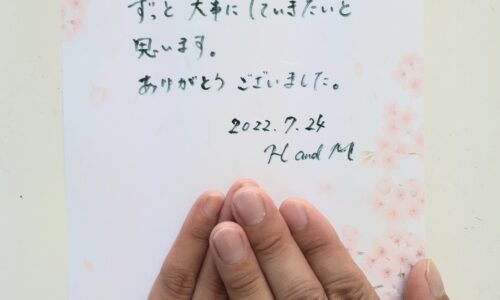 ずっと 大事に していきたいと
思います。
ありがとう ございました。
2022.7.24
H and M